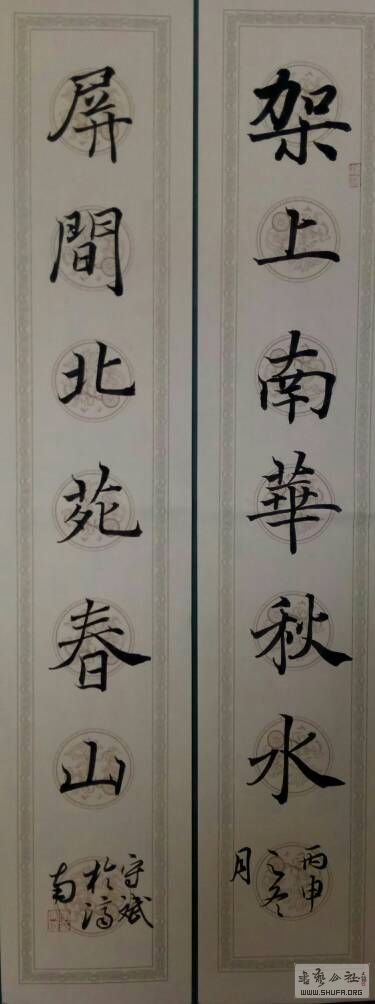 架上南華秋水
丙申
之冬
月
屏間北苑春山
守斌
於濟
南
書藝公社
WWW.SHUFA.ORG